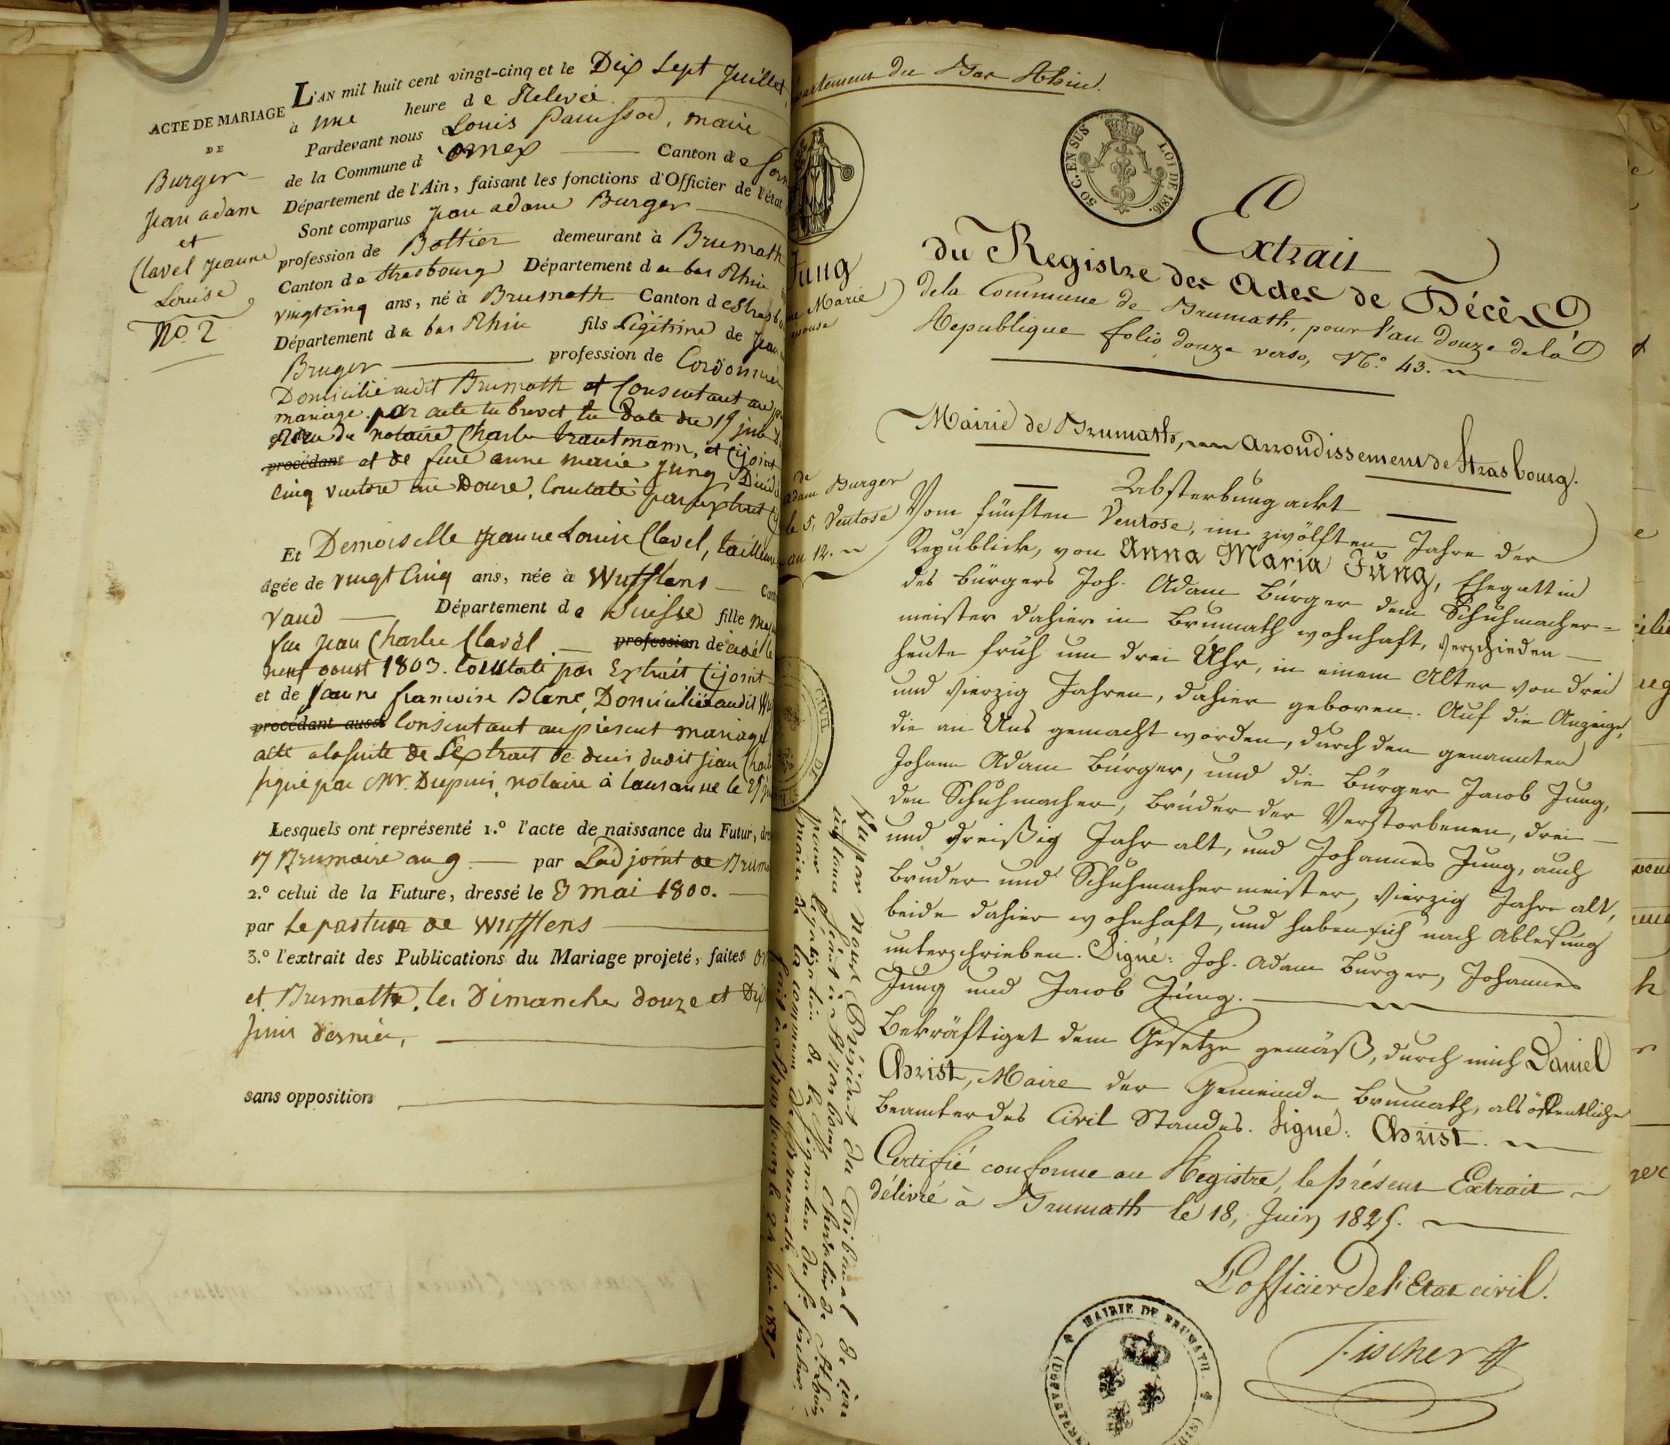 ACTE DE MARIAGE
DE
Burger
Jean adam
et
Clavel Jeanne
Louise
No. 2
L'AN mil huit cent vingt-cinq et le Dix Sept Juillet,
à une heure de Relevée
Pardevant nous Louis Panissod, maire
de la Commune d'ornex Canton de
Département de l'Ain, faisant les fonctions d'Officier de l'état
Sont comparus Jean adam Burger
profession de Bottier demeurant à Brumath
Canton de Strasbourg Département du bas Rhin
vingt cinq ans, né à Brumath Canton de
Département du bas Rhin fils Légitime de Jean
Bruger profession de Cordonnier
Domicilié audit Brumath et Consentant au
mariage par acte en brevet en date du 19 juin
du notaire Charles trautmann, et cijoint
procédant et de feue anne marie Jung, Décédée
Cinq ventose an Douze, Constaté par extrait
Et Demoiselle Jeanne Louise Clavel, tailleuse
âgée de vingt Cinq ans, née à Wufflens
vaud Département de Suisse fille
feu Jean Charles Clavel profession de
neuf aoust 1803. Constaté par Extrait Cijoint
et de Jeanne francoise Blanc, Domiciliée audit
procédant aussi Consentant au présent mariage
acte a la suite de L'extrait de deces dudit Jean
signé par Mr. Dupuis, notaire à lausanne le
Lesquels ont représenté 1.º l'acte de naissance du Futur,
17 Brumaire an 9 par L'adjoint de
2.º celui de la Future, dressé le 8 mai 1800.
par Le pasteur de Wufflens
3.º l'extrait des Publications du Mariage projeté, faites
et Brumath, les Dimanches douze et
juin dernier,
sans opposition
du Bas Rhin.
50 C. EN SUS
LOI DE 1816.
Extrait
du Registre des Actes de Décès
de la Commune de Brumath, pour l'an douze de la
Republique folio douze verso, Nº. 43.
Mairie de Brumath, arrondissement de Strasbourg.
Jung
Marie
de
adam Burger
le 5, Ventose
an 12.
Absterbungsackt
Vom fünften Ventose, im zwölften Jahre der
Republick, von Anna Maria Jung, Ehegattin
des Bürgers Joh. Adam Burger dem Schuhmacher=
meister dahier in Brumath wohnhaft, verschieden
heute früh um drei Uhr, in einem Alter von drei
und vierzig Jahren, dahier geboren. Auf die Anzeige,
die an Uns gemacht worden, durch den genannten
Johann Adam Burger, und die Bürger Jacob Jung,
den Schuhmacher, Bruder der Verstorbenen, drei
und dreißig Jahr alt, und Johannes Jung, auch
Bruder und Schuhmachermeister, vierzig Jahr alt,
beide dahier wohnhaft, und haben sich nach Ablesung
unterschrieben. Signé: Joh. Adam Burger, Johannes
Jung und Jacob Jung.
Bekräftiget dem Gesetze gemäß, durch mich Daniel
Christ, Maire der Gemeinde Brumath, als öffentlicher
Beamter des Civil Standes. Signé: Christ.
Certifié conforme au Registre, le présent Extrait
délivré à Brumath le 18, Juin 1825.
L'officier de l'Etat civil.
Fischer
MAIRIE DE BRUMATH
Vu par nous Président du Tribunal de 1ère
instance séant à Strasbourg
pour légalisation de la signature du Sr. Fischer,
maire de la commune de Brumath